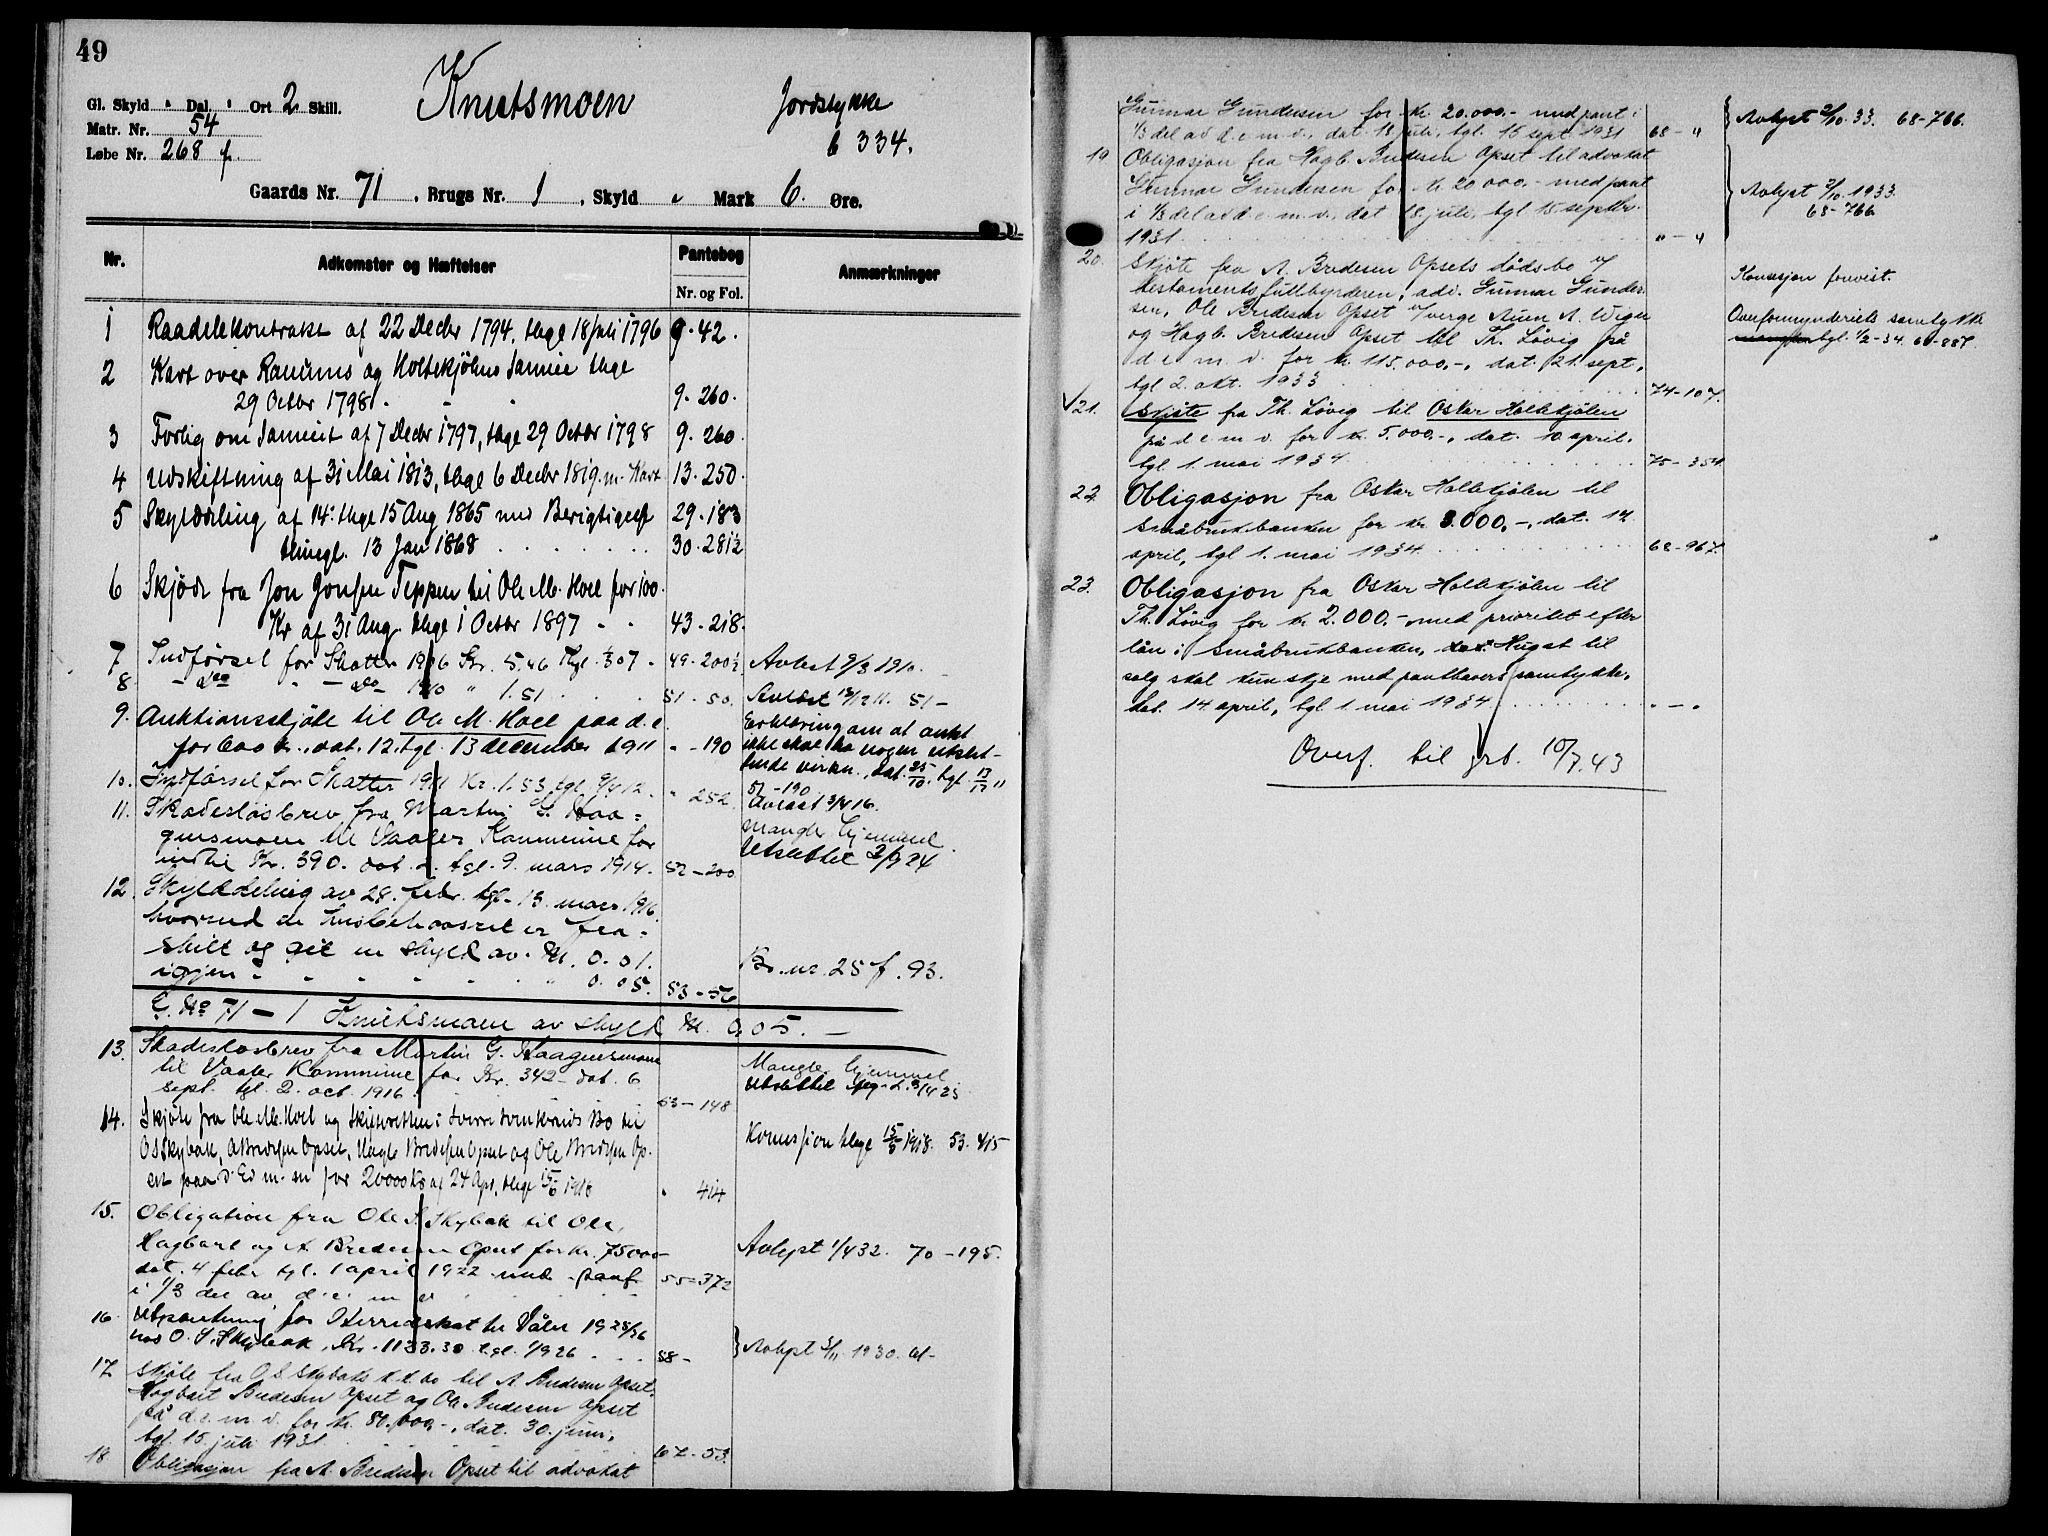 49
Gl. Skyld " Dal. " Ort 2 Skill.
Matr. Nr. 54
Løbe Nr. 268 f.
Knutsmoen
Jordstykke
b 334.
Gaards Nr. 71, Brugs Nr. 1, Skyld " Mark 6 Øre.
Nr.
Adkomster og Hæftelser
Pantebog
Nr. og Fol.
Anmærkninger
1 Raadelekontrakt af 22 Decbr 1794, thlgt 18 Juli 1796 9-42.
2 Kart over Ranums og Holtekjølns Sameie thlgt
29 Octbr 1798. 9-260.
3 Forlig om Sameiet af 7 Decbr 1797, thlgt 29 Octbr 1798 9.260.
4 Udskiftning af 31 Mai 1813, thlgt 6 Decbr 1819. m. Kart 13-250.
5 Skylddeling af 14. thlgt 15 Aug 1865 med Berigtigelse 29-183
thingl. 13 Jan 1868 30-281½
6 Skjøde fra Jon Jonsen Teppen til Ole M. Hoel for 100
Kr af 31 Aug thlgt 1 Octbr 1897 43-218.
7 Indførsel for Skatter 1906 Kr. 5.46 Thgl. 4/3 07 - 49-200½ Avlest 9/3 1910.
8. - do - do 1910 " 1.51. 51-50. Avlæst 13/12 11. 51-
9. Auktionsskjøte til Ole M. Hoel paa d. e.
for 600 kr., dat. 12, tgl. 13 december 1911 " -190
Erklæring om at auket
ikke skal ha nogen utslet-
tende virkn., dat. 25/10, tgl. 13/12 11
51-190
10. Indførsel for Skatter 1911 Kr. 1.53 tgl. 9/4 12. " 252. Avlæst 3/4 16.
11. Skadesløsbrev fra Martin G. Haa-
gensmoen til Vaaler Kommune for
indtil Kr. 390. dat. o. tgl. 9. mars 1914. 52-200
Mangler hjemmel.
Utslettet 2/9 24
12. Skylddeling av 28. febr. tgl. 13. mars 1916,
hvorved de husbehovsret er fra-
skilt og git en skyld av M. 0.01.
igjen - " " " " " 0.05. 53-56
Br. nr. 25 f. 93.
G. No 71-1 Knutsmoen av skyld M. 0,05. -
13. Skadesløsbrev fra Martin G. Haagensmoen
til Vaaler Kommune for Kr. 342 - dat. 6
sept. tgl. 2. oct. 1916. 53-148
Mangler hjemmel
14. Skjøte fra Ole M. Hoel og Skifteretten i Sverre Svenkeruds Bo til
O S Skybak, A Bredesen Opset, Hagb. Bredesen Opset og Ole Bredesen Op-
set paa d. Ed m. en for 20000 Kr af 24 Apr, thlgt 15/6 1918 " 414
Konsesjon thlgt 15/6 1918. 53-415
15. Obligation fra Ole S. Skybak til Ole,
Hagbart og A. Bredesen Opset for kr. 75000
dat. 4 febr tgl. 1 april 1922 med pant
i 1/3 del av d. e. m. v. 55-372
Avlyst 1/4 32. 70-195.
16. Utpantning for Herredskat til Våler 1925/26
hos O. S. Skybak, Kr. 1133.30 tgl. 1/9 26 58-
Avlyst 5/11 1930.
17. Skjøte fra O S Skybaks k.k.bo til A Bredesen Opset,
Hagbart Bredesen Opset og Ole Bredesen Opset
på d. e. m. v. for kr. 80.000,-, dat. 30. juni,
tgl. 15. juli 1931. 67-53.
18 Obligasjon fra A. Bredesen Opset til advokat
Gunnar Gundersen for kr. 20.000.- med pant i
1/3 del av d. e. m. v., dat. 18 juli, tgl. 15 sept. 1931 68-4
Avlyst 2/10. 33. 68-766.
19 Obligasjon fra Hagb. Bredesen Opset til advokat
Gunnar Gundersen for kr. 20 000.- med pant
i 1/3 del av d. e. m. v., dat 18. juli, tgl 15. septbr.
1931. " - 4
Avlyst 2/10. 1933.
68-766
20. Skjøte fra A. Bredesen Opsets dødsbo v/
testamentsfullbyrderen, adv. Gunnar Gunder-
sen, Ole Bredesen Opset v/verge Auen A. Wiger
og Hagb. Bredesen Opset til Th. Løvig på
d. e. m. v. for kr. 115.000.-, dat. 21. sept.,
tgl 2. okt. 1933 74-107.
Konsesjon forevist.
Overformynderiets samtykke
mangler tgl. 1/2-34. 68-887.
√21. Skjøte fra Th. Løvig til Oskar Holtekjølen
på d. e. m. v. for kr. 5.000.-, dat. 10. april,
tgl. 1. mai 1934 75-354.
22. Obligasjon fra Oskar Holtekjølen til
Småbrukbanken for kr. 3.000.-, dat. 14.
april, tgl 1. mai 1934 68-967.
23. Obligasjon fra Oskar Holtekjølen til
Th. Løvig for kr 2.000.- med prioritet efter
lån i småbrukbanken, dat. Hugst til
salg skal kun skje med panthavers samtykke,
dat. 14 april, tgl 1. mai 1934 " - "
Overf. til grb. 10/7.43